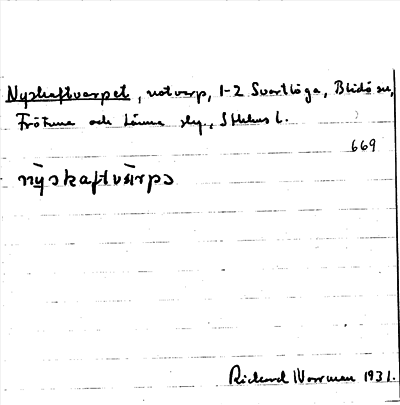 Nyskaftvarpet, notvarp, 1-2 Svartlöga, Blidö sn,
Frötuna och Länna sky., Sthlms l.
669
nyskaftvärps
Rickard Norrman 1931.